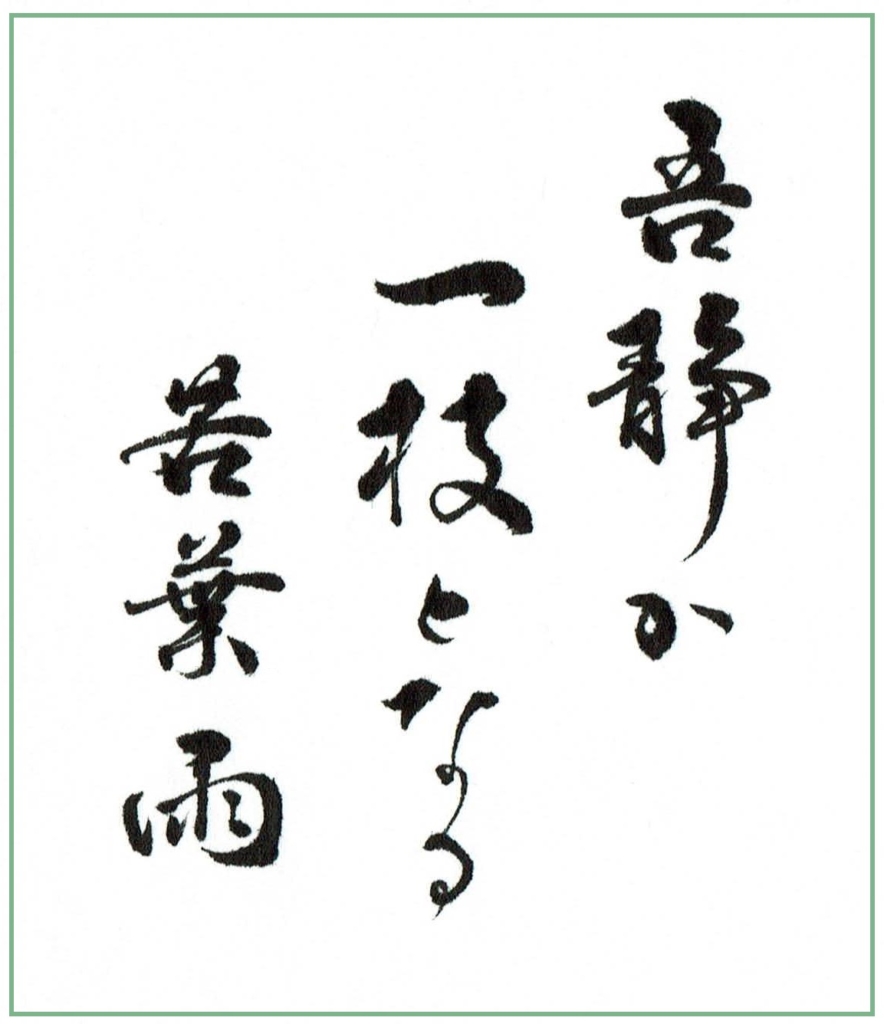 吾静か
一枝となる
若葉雨